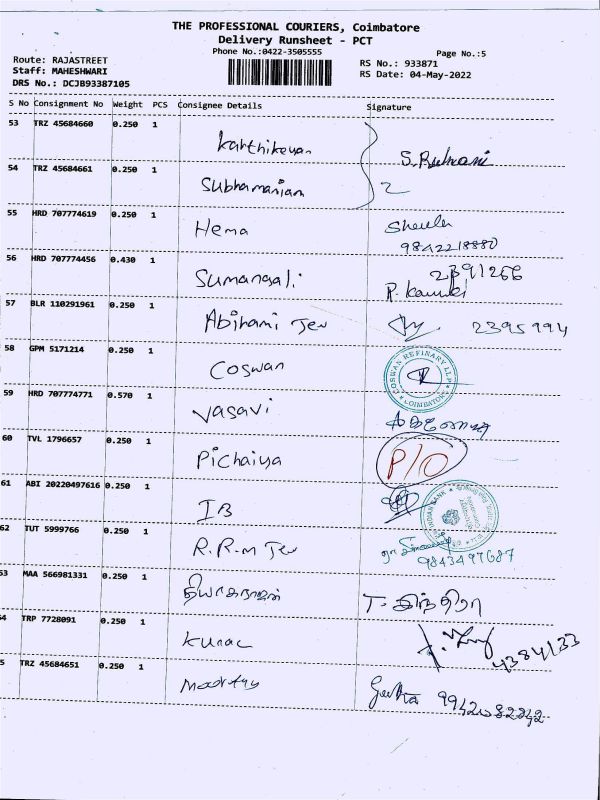 THE PROFESSIONAL COURIERS, Coimbatore
Delivery Runsheet - PCT
Phone No.:0422-3505555
Page No.:5
Route: RAJASTREET
Staff: MAHESHWARI
DRS No.: DCJB93387105
RS No.: 933871
RS Date: 04-May-2022
S No Consignment No Weight PCS Consignee Details Signature
53 TRZ 45684660 0.250 1
Karthikeyan
54 TRZ 45684661 0.250 1
Subhamaniam
2
55 HRD 707774619 0.250 1
Hema
9842218880
56 HRD 707774456 0.430 1
Sumangali
2391266
57 BLR 110291961 0.250 1
Abihami Jew 2395994
58 GPM 5171214 0.250 1
Coswan
COSWAN REFINARY LLP
COIMBATORE
59 HRD 707774771 0.570 1
Vasavi
60 TVL 1796657 0.250 1
Pichaiya P/O
61 ABI 20220497616 0.250 1
IB
INDIAN BANK
62 TUT 5999766 0.250 1
R.R.M Jew
9843497687
53 MAA 566981331 0.250 1
தியாகராஜன்
54 TRP 7728091 0.250 1
4384133
5 TRZ 45684651 0.250 1
Geetha